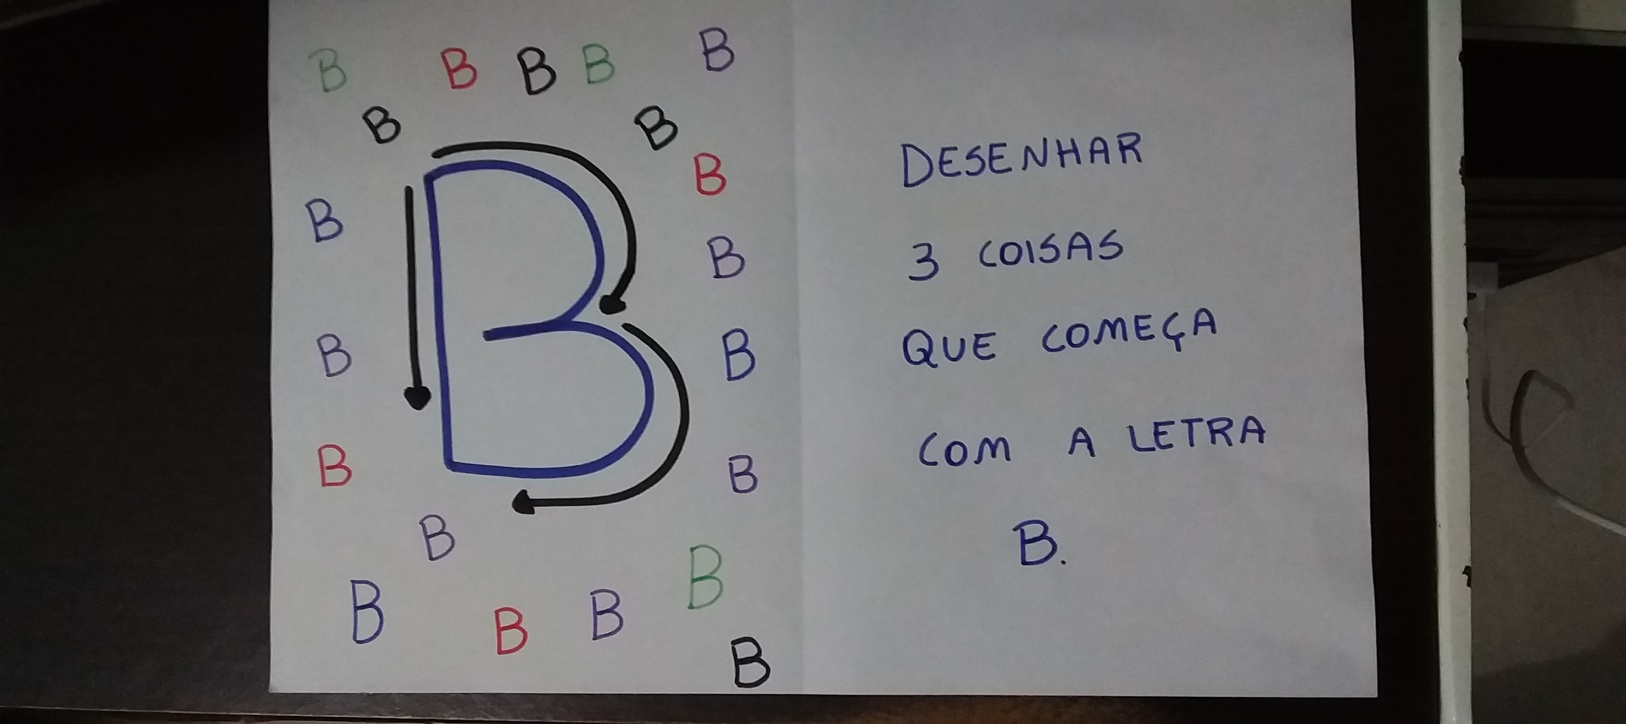 B B B B B
B B
B
B
B
B
B
B
B
B
B
B B B
B
B
DESENHAR
3 COISAS
QUE COMEÇA
COM A LETRA
B.